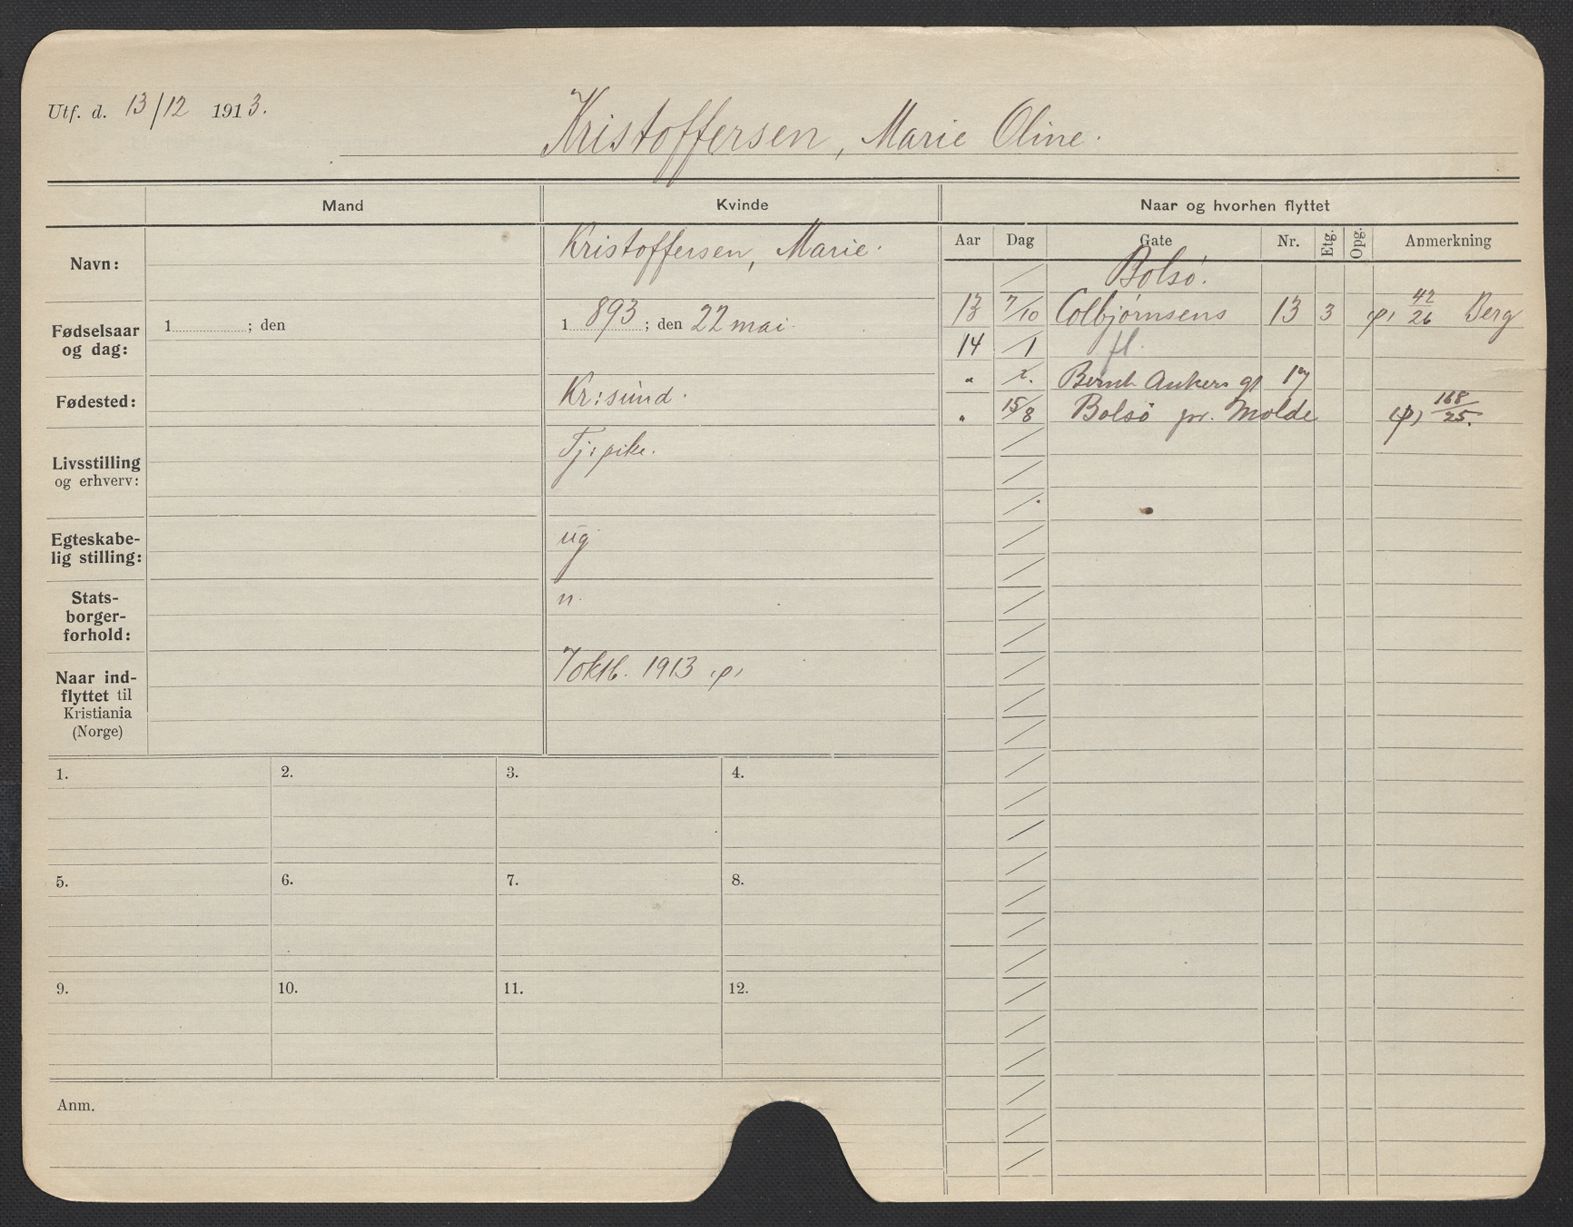 Utf. d. 13/12 1913.
Kristoffersen, Marie Oline.
Mand
Kvinde
Naar og hvorhen flyttet
Aar Dag Gate Nr. Etg. Opg. Anmerkning
Navn:
Kristoffersen, Marie.
Fødselsaar
og dag:
1 ; den
1893 ; den 22 mai.
Fødested:
Kr:sund.
Livsstilling
og erhverv:
Tj:pike.
Egteskabe-
lig stilling:
ug
Stats-
borger-
forhold:
n.
Naar ind-
flyttet til
Kristiania
(Norge)
7 oktb. 1913
Bolsø.
13 7/10 Colbjørnsens 13 3 42/26 Berg
14 /1 fl.
" Bernh Ankers g 17
" 15/8 Bolsø pr. Molde 168/25.
1.
2.
3.
4.
5.
6.
7.
8.
9.
10.
11.
12.
Anm.